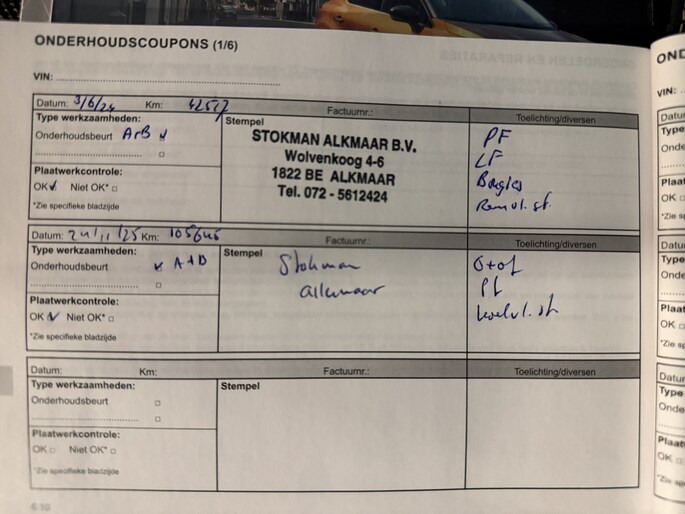 ONDERHOUDSCOUPONS (1/6)
VIN:
Datum: 3/6/24 Km: 42517 Factuurnr.: Toelichting/diversen
Type werkzaamheden:
Onderhoudsbeurt A+B
Plaatwerkcontrole:
OK Niet OK*
*Zie specifieke bladzijde
Stempel
STOKMAN ALKMAAR B.V.
Wolvenkoog 4-6
1822 BE ALKMAAR
Tel. 072 - 5612424
PF
LF
Bougies
Remvl. st.
Datum: 24/11/25 Km: 105645 Factuurnr.: Toelichting/diversen
Type werkzaamheden:
Onderhoudsbeurt A+B
Plaatwerkcontrole:
OK Niet OK*
*Zie specifieke bladzijde
Stempel
Stokman
Alkmaar
O+of
Pf
koelvl. st
Datum: Km: Factuurnr.: Toelichting/diversen
Type werkzaamheden:
Onderhoudsbeurt
Plaatwerkcontrole:
OK Niet OK*
*Zie specifieke bladzijde
Stempel
6.10
OND
VIN:
Datu
Type
Onde
Plaat
OK
*Zie sp
Datur
Type
Onde
Plaat
OK
*Zie sp
Datur
Type
Onde
Plaat
OK
*Zie sp